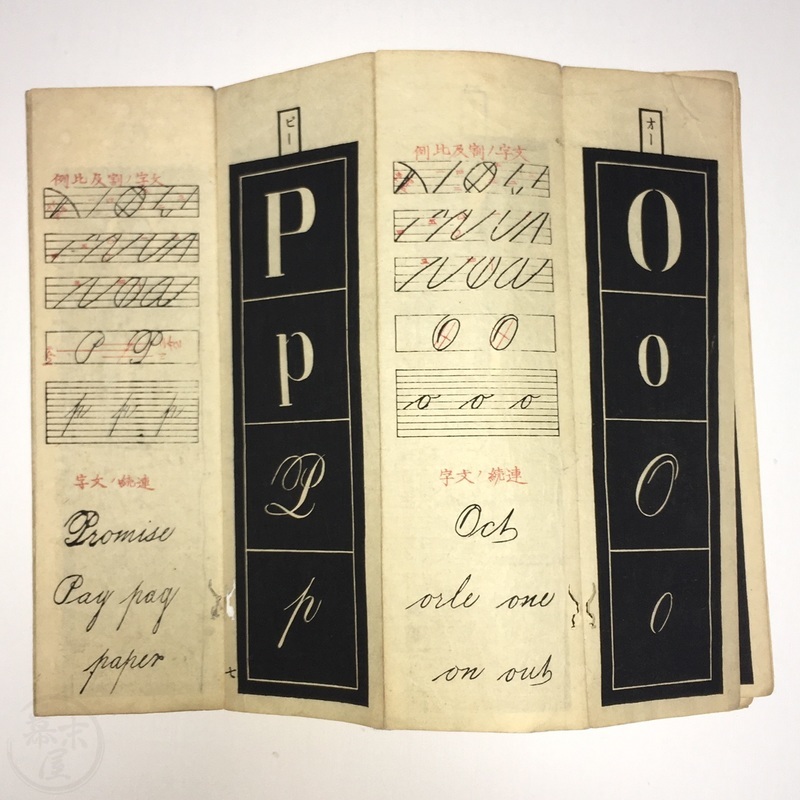 オー
O
o
O
o
文字ノ割及比例
O O
o o o
連続ノ文字
Oct
orle one
on out
ピー
P
p
P
p
七
文字ノ割及比例
P P
p p p
連続ノ文字
Promise
Pay pay
paper
幕末
屋